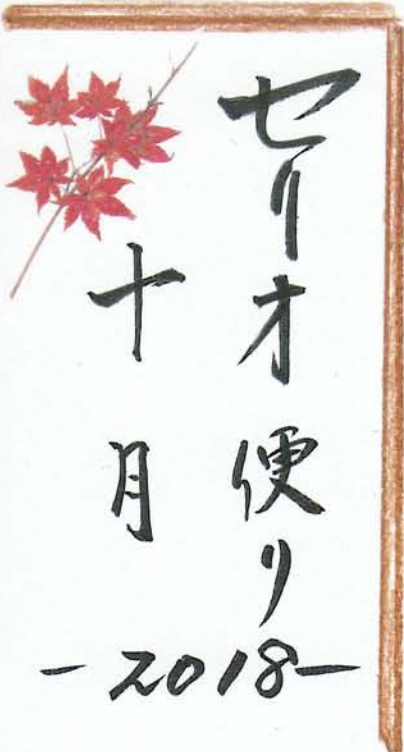 セリオ便り
十月
-2018-